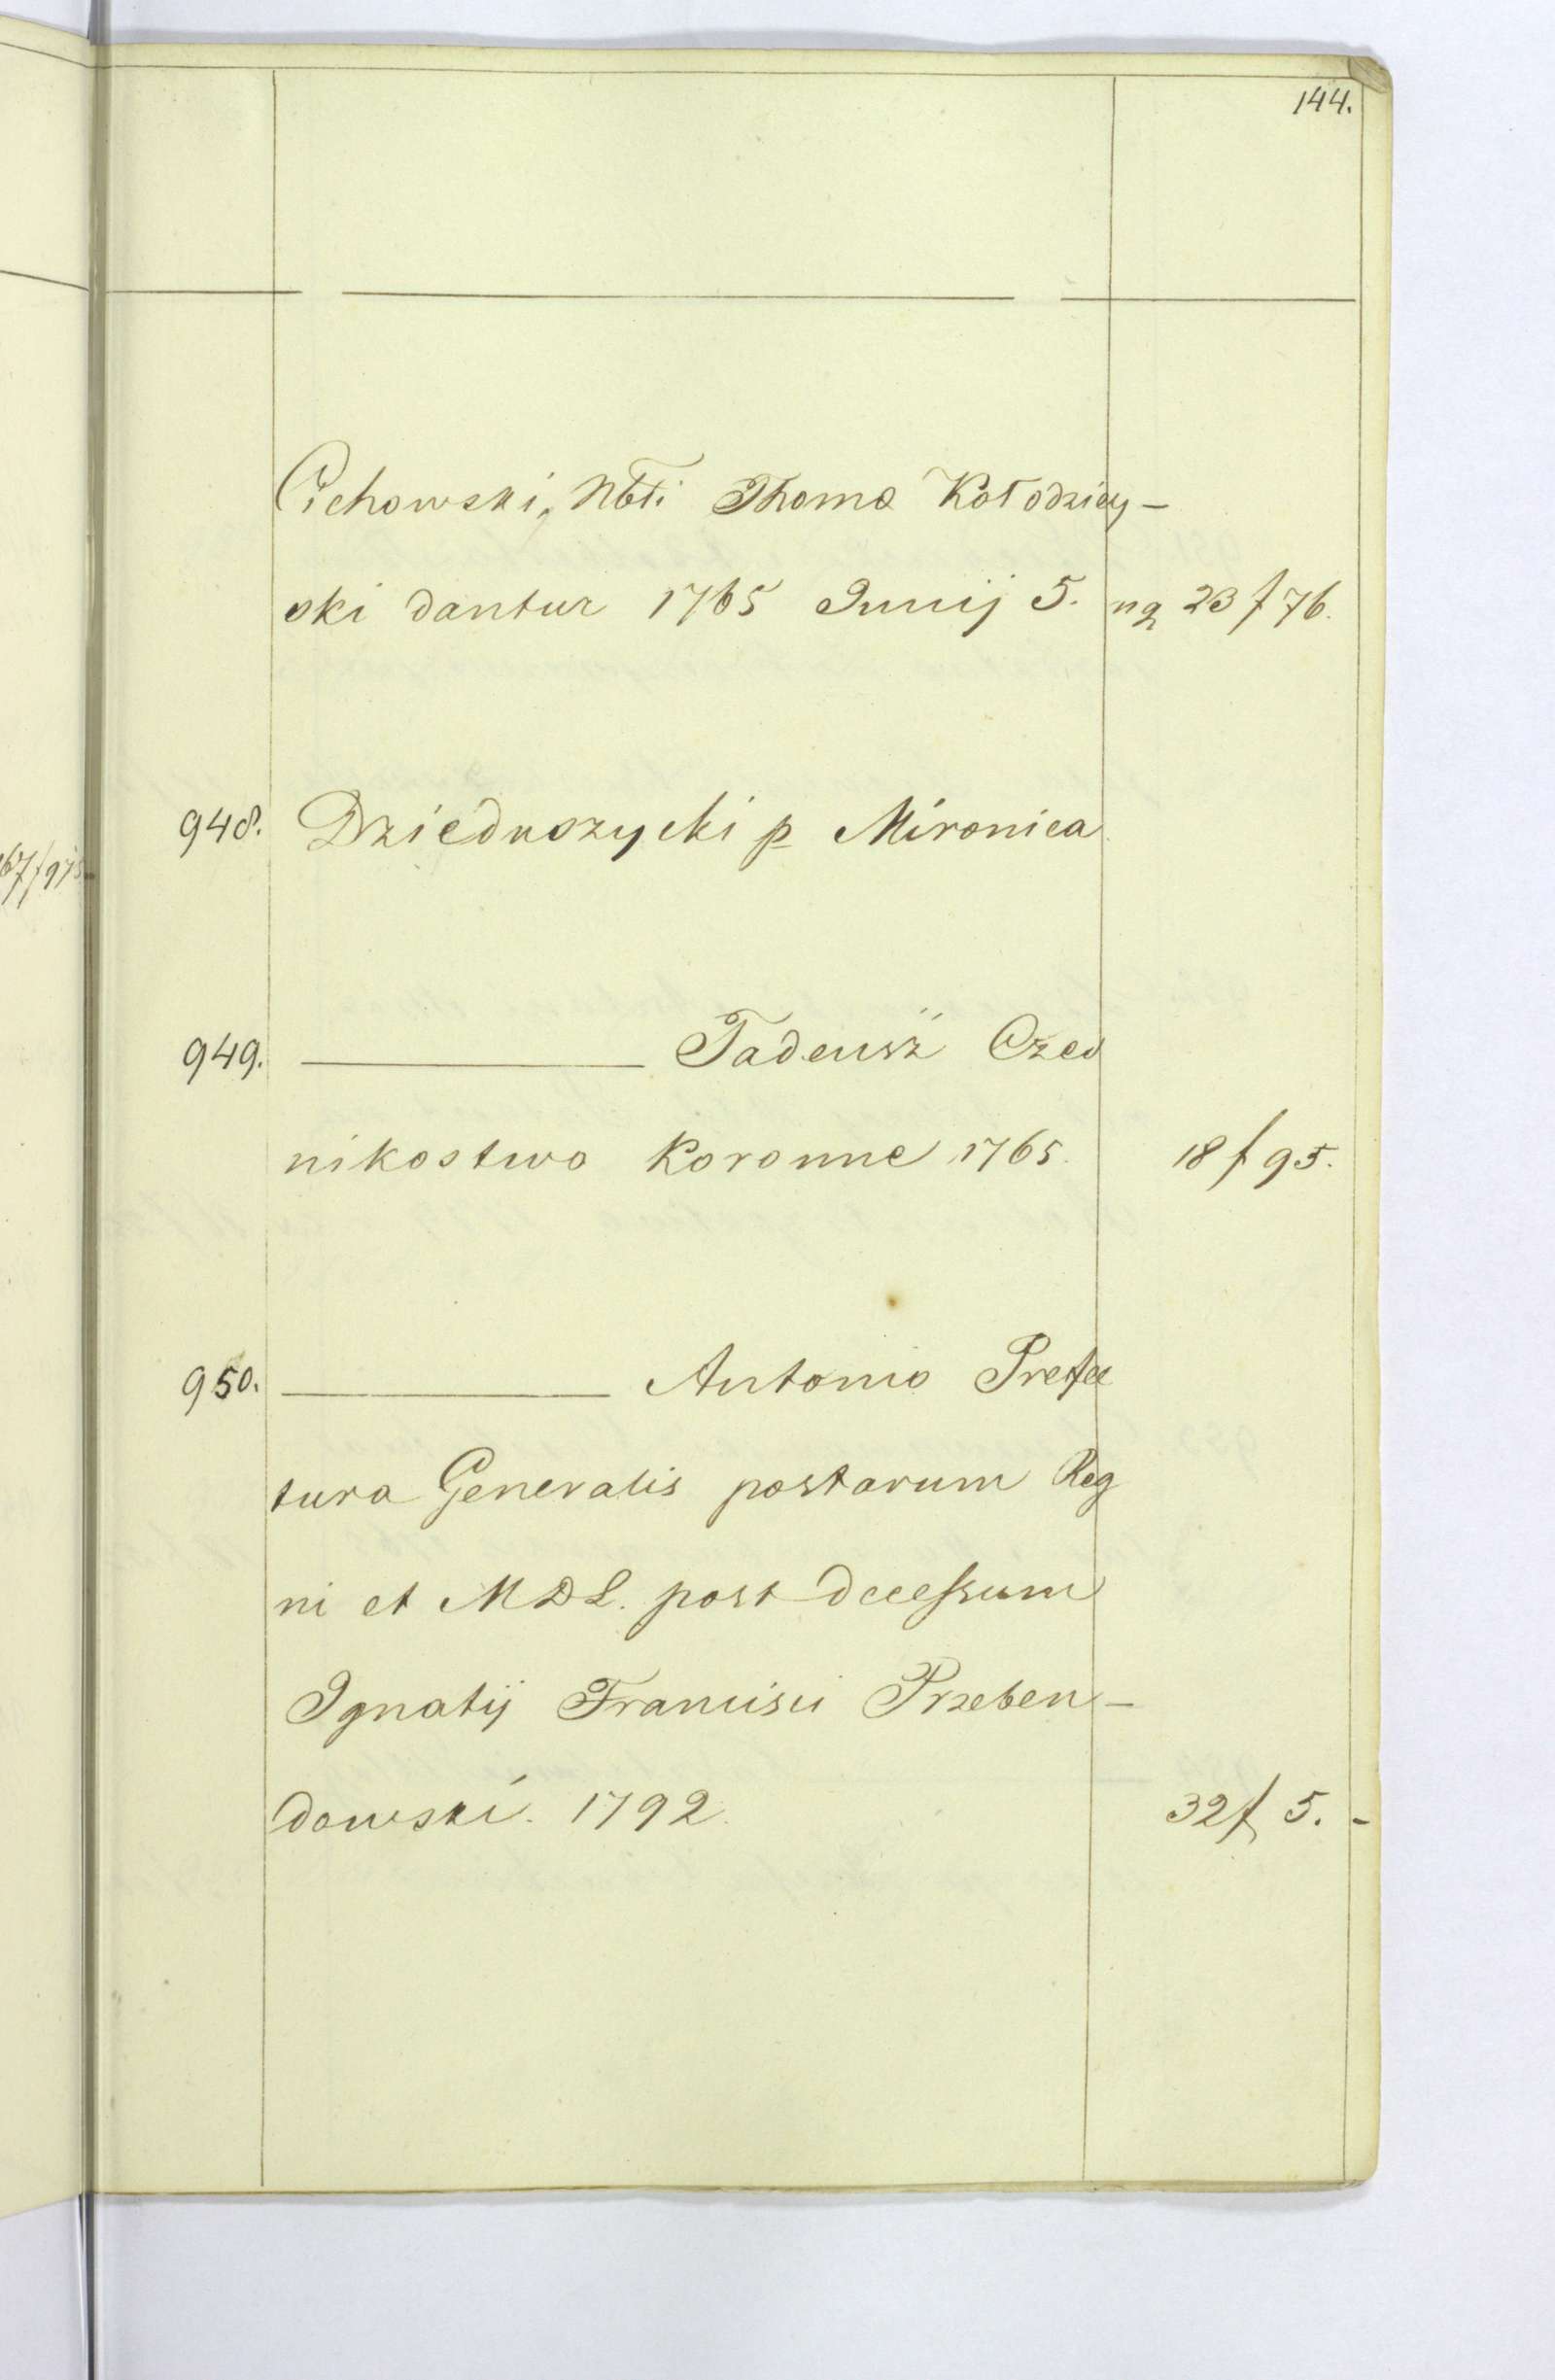 144.
Cichowski, Nbłi Thoma Kołodziey-
ski dantur 1765 Junij 5. nq 23 f 76.
948. Dzieduszycki p Mironica
949. ———— Tadeusz Czes
nikostwo Koronne 1765. 18 f 95.
950. ———— Antonio Prefec
tura Generalis postarum Reg
ni et MDL. post decessum
Ignatij Francisci Przeben-
dowski. 1792. 32 f 5. -